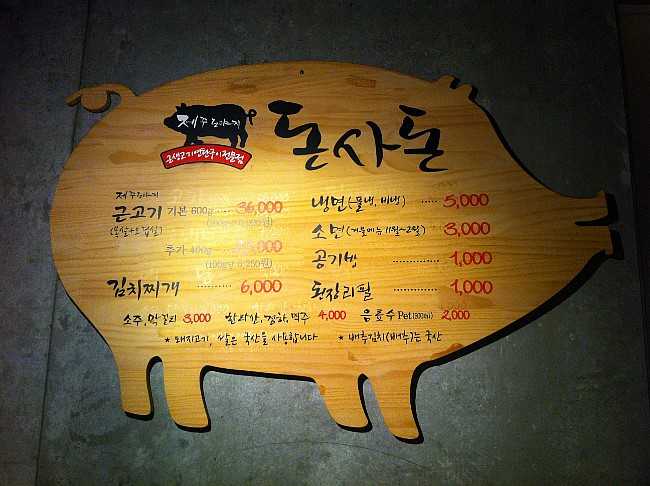 제주
돈사돈
근생고기연탄구이전문점
제주
근고기 기본 600g ..... 36,000
(목살+오겹살)
추가 400g
(100g당 6,250원)
김치찌개 ........... 6,000
냉면(물냉, 비냉) ...... 5,000
소면(겨울메뉴 11월~2월) 3,000
공기밥 ................ 1,000
된장리필 ............. 1,000
소주, 막걸리 3,000 한라산, 청하, 맥주 4,000 음료수 Pet(500ml) 2,000
* 돼지고기, 쌀은 국산을 사용합니다 * 배추김치(배추)는 국산